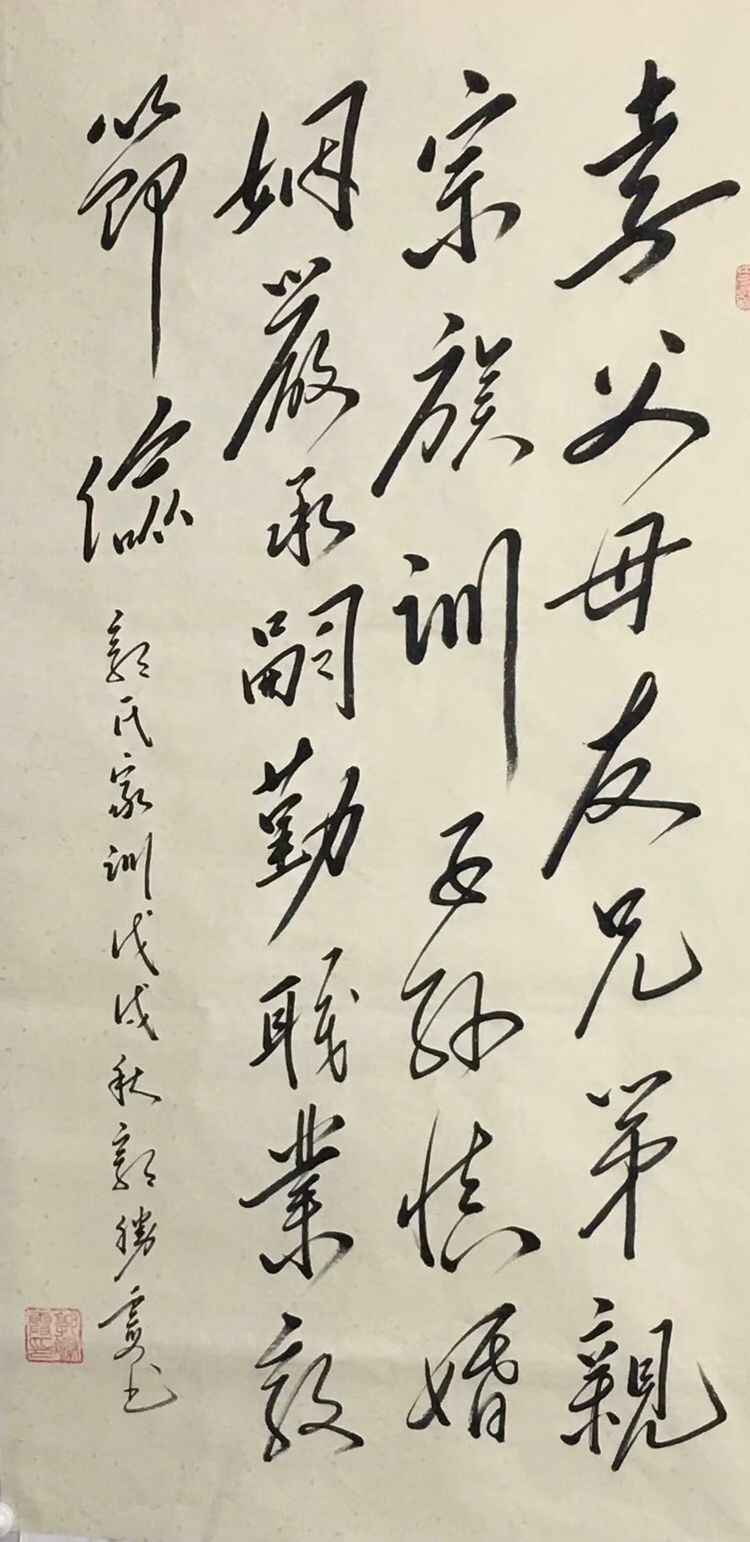 孝父母友兄弟親
宗族訓子孫慎婚
姻嚴承嗣勤職業敦
節儉
郭氏家訓戊戌秋郭勝霞书